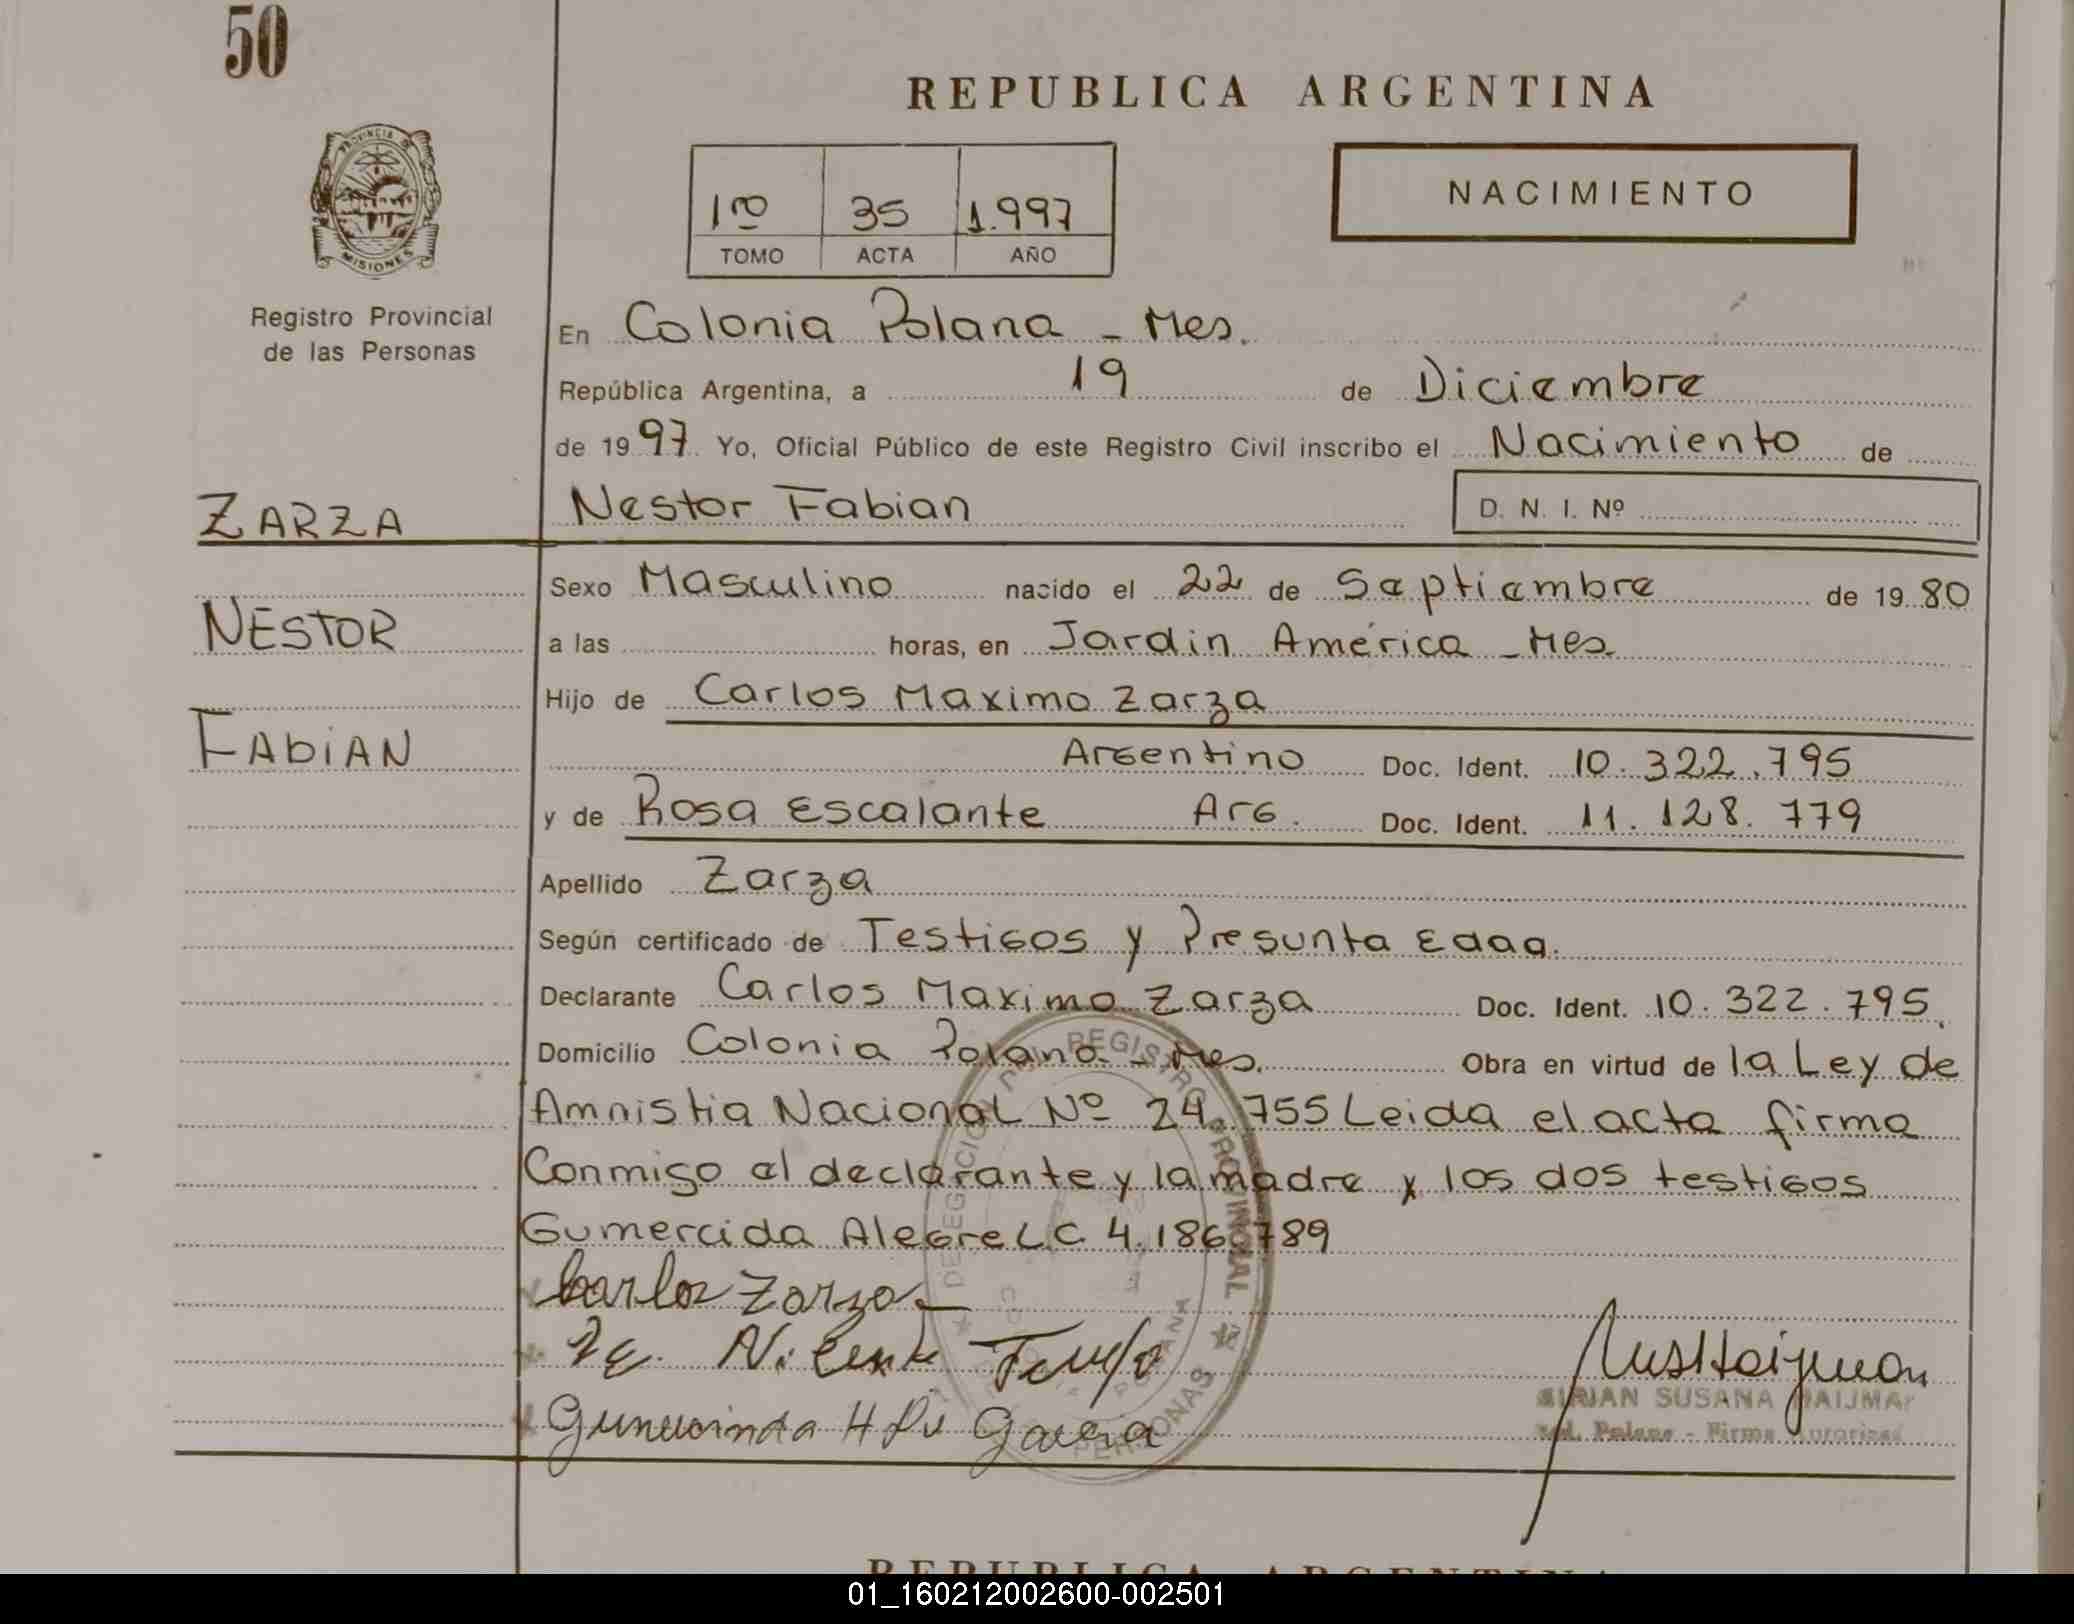 50
REPUBLICA ARGENTINA
PROVINCIA DE
MISIONES
1ro 35 1.997
TOMO ACTA AÑO
NACIMIENTO
Registro Provincial
de las Personas
En Colonia Polana - Mes.
República Argentina, a 19 de Diciembre
de 1997 Yo, Oficial Público de este Registro Civil inscribo el Nacimiento de
ZARZA
Nestor Fabian D. N. I. Nº
Sexo Masculino nacido el 22 de Septiembre de 1980
NESTOR
a las horas, en Jardin América - Mes.
Hijo de Carlos Maximo Zarza
FABiAN
Argentino Doc. Ident. 10.322.795
y de Rosa Escalante Arg. Doc. Ident. 11.128.779
Apellido Zarza
Según certificado de Testigos y Presunta Edad.
Declarante Carlos Maximo Zarza Doc. Ident. 10.322.795.
Domicilio Colonia Polana - Mes. Obra en virtud de la Ley de
Amnistia Nacional Nº 24.755 Leida el acta firma
Conmigo el declarante y la madre y los dos testigos
Gumercida Alegre L.C. 4.186.789
Carlos Zarza
Gumercinda H De Garcia
DELEGACION DEL REGISTRO PROVINCIAL
PERSONAS
SUSANA
REPUBLICA ARGENTINA
01_160212002600-002501